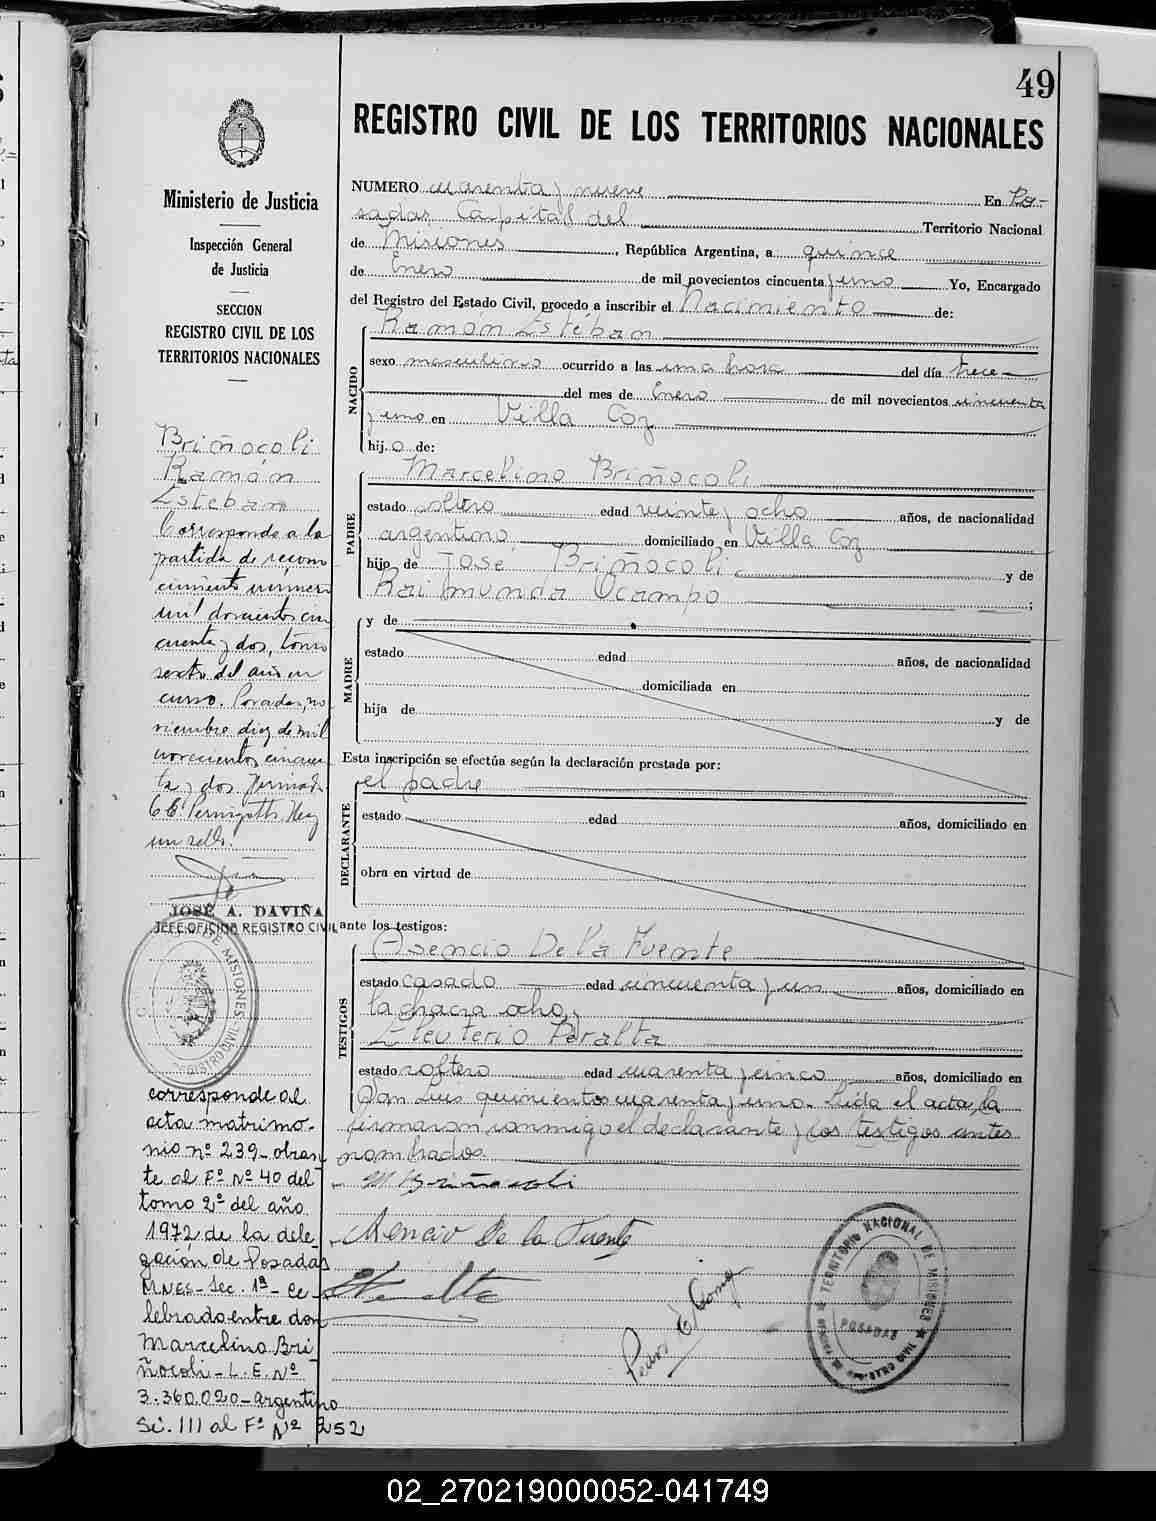 49
REGISTRO CIVIL DE LOS TERRITORIOS NACIONALES
Ministerio de Justicia
Inspección General
de Justicia
SECCION
REGISTRO CIVIL DE LOS
TERRITORIOS NACIONALES
NUMERO cuarenta y nueve En Po-
sadas Capital del Territorio Nacional
de Misiones, República Argentina, a quince
de Enero de mil novecientos cincuenta y uno Yo, Encargado
del Registro del Estado Civil, procedo a inscribir el Nacimiento de:
NACIDO
Ramón Estéban
sexo masculino ocurrido a las una hora del día trece
del mes de Enero de mil novecientos cincuenta
y uno en Villa Coz
hijo de:
PADRE
Marcelino Briñocoli
estado soltero edad veinte y ocho años, de nacionalidad
argentino domiciliado en Villa Coz
hijo de José Briñocoli y de
Raimunda Ocampo;
MADRE
y de
estado edad años, de nacionalidad
domiciliada en
hija de y de
Esta inscripción se efectúa según la declaración prestada por:
DECLARANTE
el padre
estado edad años, domiciliado en
obra en virtud de
ante los testigos:
TESTIGOS
Asencio De la Fuente
estado casado edad cincuenta y un años, domiciliado en
la chacra ocho,
Eleuterio Peralta
estado soltero edad cuarenta y cinco años, domiciliado en
San Luis quinientos cuarenta y uno. Leída el acta, la
firmaron conmigo el declarante y los testigos antes
nombrados.
M Briñocoli
Asencio De la Fuente
Pedro
TERRITORIO NACIONAL DE MISIONES
POSADAS
REGISTRO CIVIL
Briñocoli
Ramón
Esteban
Corresponde a la
partida de recono
cimiento número
mil doscientos cin
cuenta y dos, tomo
sexto del año en
curso. Posadas, no
viembre diez de mil
novecientos cincuen
ta y dos firmado
Hay
un sello.
JOSÉ A. DAVIÑA
JEFE OFICINA REGISTRO CIVIL
DE MISIONES
REGISTRO CIVIL
corresponde al
acta matrimo-
nio nº 239 - obran
te al Fº Nº 40 del
tomo 2º del año
1972 de la dele-
gación de Posadas
MNES - Sec. 1ª - ce-
lebrado entre don
Marcelino Bri
ñocoli - L.E. Nº
3.360.020 - argentino
Si. III al Fº Nº 252
02_270219000052-041749